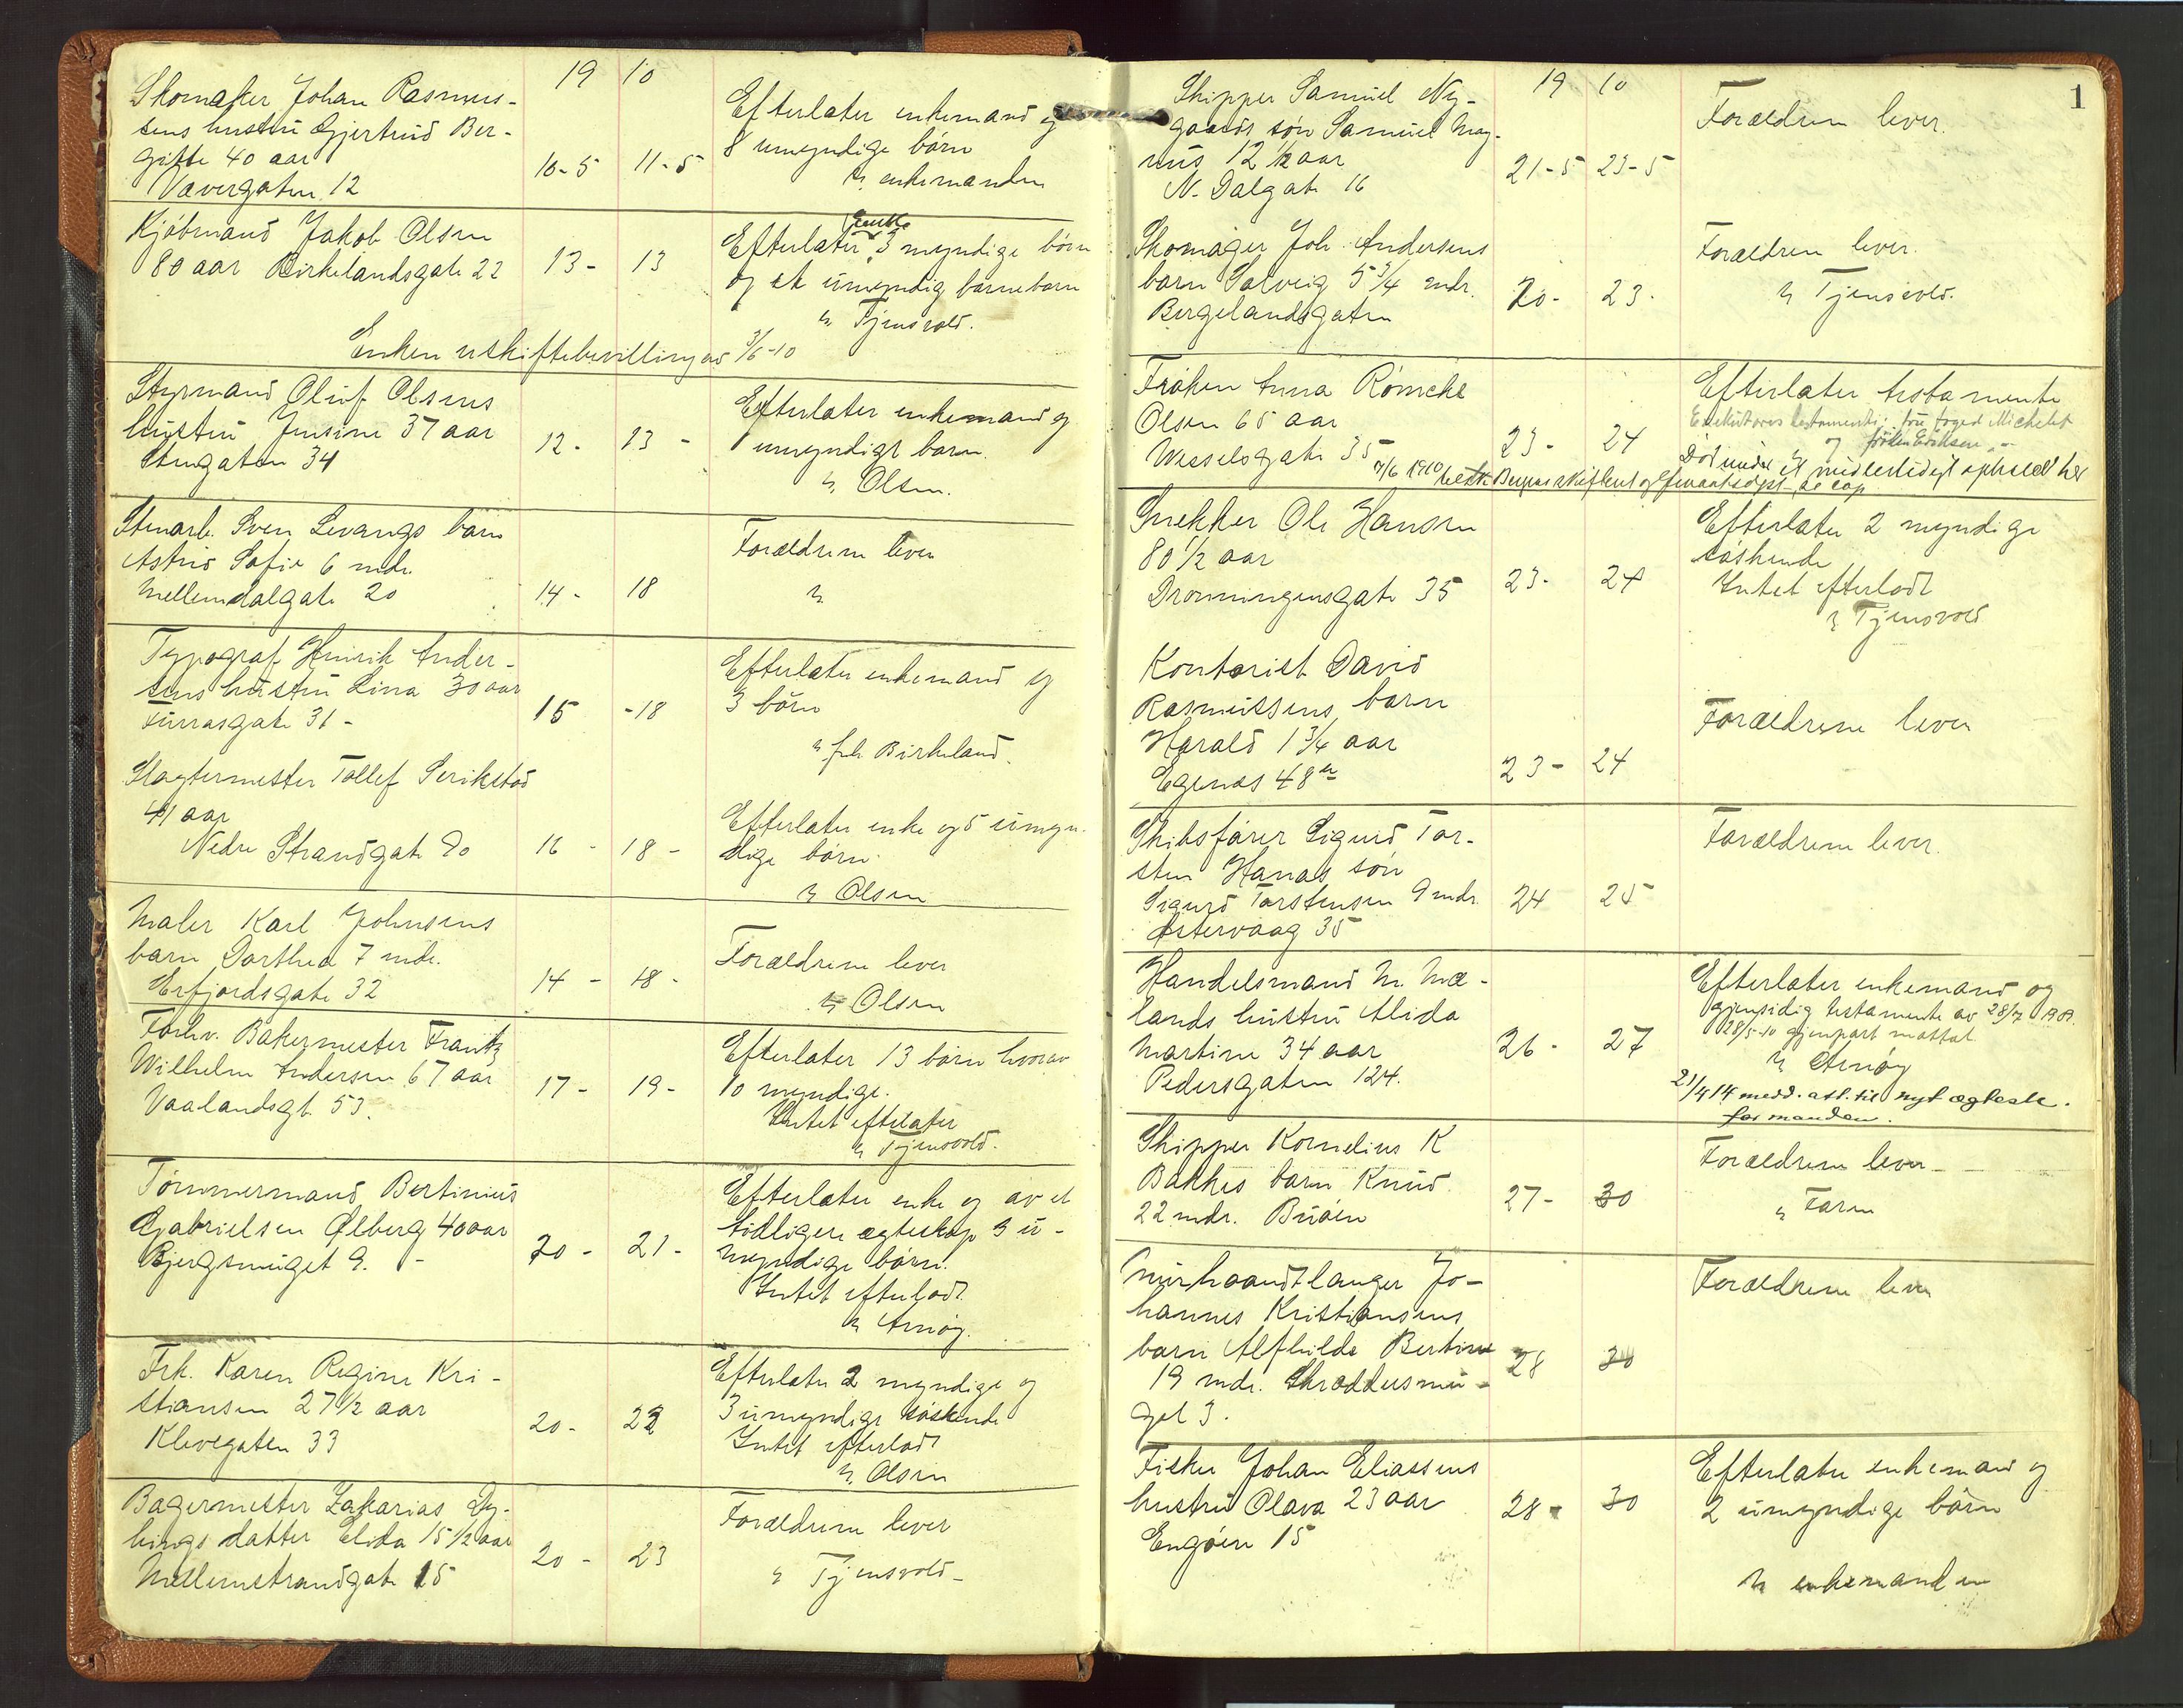 19 10
Skomaker Johan Rasmus-
sens hustru Gjertrud Ber-
gitte 40 aar
Vævergaten 12
10-5 11-5
Efterlater enkemand og
8 umyndige børn
enkemanden
Kjøbmand Jakob Olsen
80 aar Birkelandsgate 22
13- 13
enke
Efterlater 3 myndige børn
og et umyndig barnebarn
Tjensvold.
Enken uskiftebevilling av 3/6-10
Styrmand Oluf Olsens
hustru Jensine 37 aar
Stengaten 34
12- 13-
Efterlater enkemand og
1 umyndigt barn.
Olsen.
Stenarb. Sven Levangs barn
Astrid Sofie 6 mdr.
Mellemdalgate 20
14- 18
Forældrene lever
Typograf Henrik Ander-
sens hustru Lina 30 aar
Furrasgate 31-
15 -18
Efterlater enkemand og
3 børn
frk. Birkeland.
Slagtermester Tollef Serikstad
41 aar
Nedre Strandgate 90
16 - 18-
Efterlater enke og 5 umyn-
dige børn.
Olsen
Maler Karl Johnsens
barn Dorthea 7 mdr.
Erfjordsgate 32
14 - 18-
Forældrene lever
Olsen
Forhv. Bakermester Frantz
Wilhelm Andersen 67 aar
Vaalandsgt. 53.
17- 19-
Efterlater 13 børn hvorav
10 myndige.
Intet efterlater
Tjensvold.
Tømmermand Bertinius
Gabrielsen Ølberg 40 aar
Bjergsmuget 9. -
20- 21-
Efterlater enke og av et
tidligere ægteskap 3 u-
myndige børn.
Intet efterladt
Arnøy.
Frk. Karen Regine Kri-
stiansen 27 1/2 aar
Klevegaten 33
20- 22
Efterlater 2 myndige og
3 umyndige søskende
Intet efterladt
Olsen
Bagermester Zakarias Dy-
bings datter Elida 15 1/2 aar
Mellemstrandgate 15
20- 23
Forældrene lever
Tjensvold-
1
19 10
Skipper Samuel Ny-
gaards søn Samuel Mag-
nus 12 1/2 aar
N. Dalgate 16
21-5 23-5
Forældrene lever.
Skomager Joh. Andersens
barn Solveig 5 3/4 mdr.
Bergelandsgaten
20- 23-
Forældrene lever.
Tjensvold.
Frøken Anna Römcke
Olsen 65 aar
Wesselsgate 35
23- 24
Efterlater testamente
Executores testamenti: frue foged Michelet
og frøken Eriksen
Død under et midlertidigt ophold her
Snekker Ole Hansen
80 1/2 aar
Dronningensgate 35
23- 24
Efterlater 2 myndige
søskende
Intet efterladt
Tjensvold
Kontorist David
Rasmussens barn
Harald 1 3/4 aar
Egenes 48
23- 24
Forældrene lever
Skibsfører Sigurd Tor-
sten Hanas søn
Sigurd Torstensen 9 mdr.
Østervaag 35
24 25
Forældrene lever.
Handelsmand M. Mæ-
lands hustru Alida
Martine 34 aar
Pedersgaten 124.
26- 27
Efterlater enkemand og
gjensidig testamente av 28/7 1909.
28/5-10 gjenpart mottat
Arnøy
21/4 14 medd. att. til nyt ægtesk.
for manden.
Skipper Kornelius K
Bakkes barn Knud
22 mdr. Buøen
27- 30
Forældrene lever-
Faren
Murhaandtlanger Jo-
hannes Kristiansens
barn Alfhilde Bertine
19 mdr. Skreddersmu-
get 3.
28 30
Forældrene lever
Fisker Johan Eliassens
hustru Olava 23 aar
Engøen 15
28- 30
Efterlater enkemand og
2 umyndige børn
enkemanden